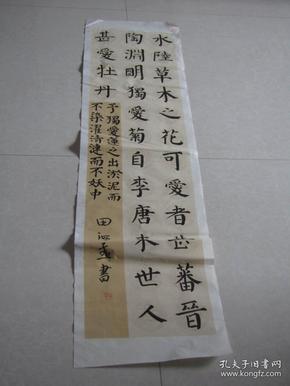 水陸草木之花可愛者蕃晉
陶淵明獨愛菊自李唐木世人
甚愛牡丹
予獨愛蓮之出淤泥而
不染濯清漣而不妖中
田書
孔夫子旧书网